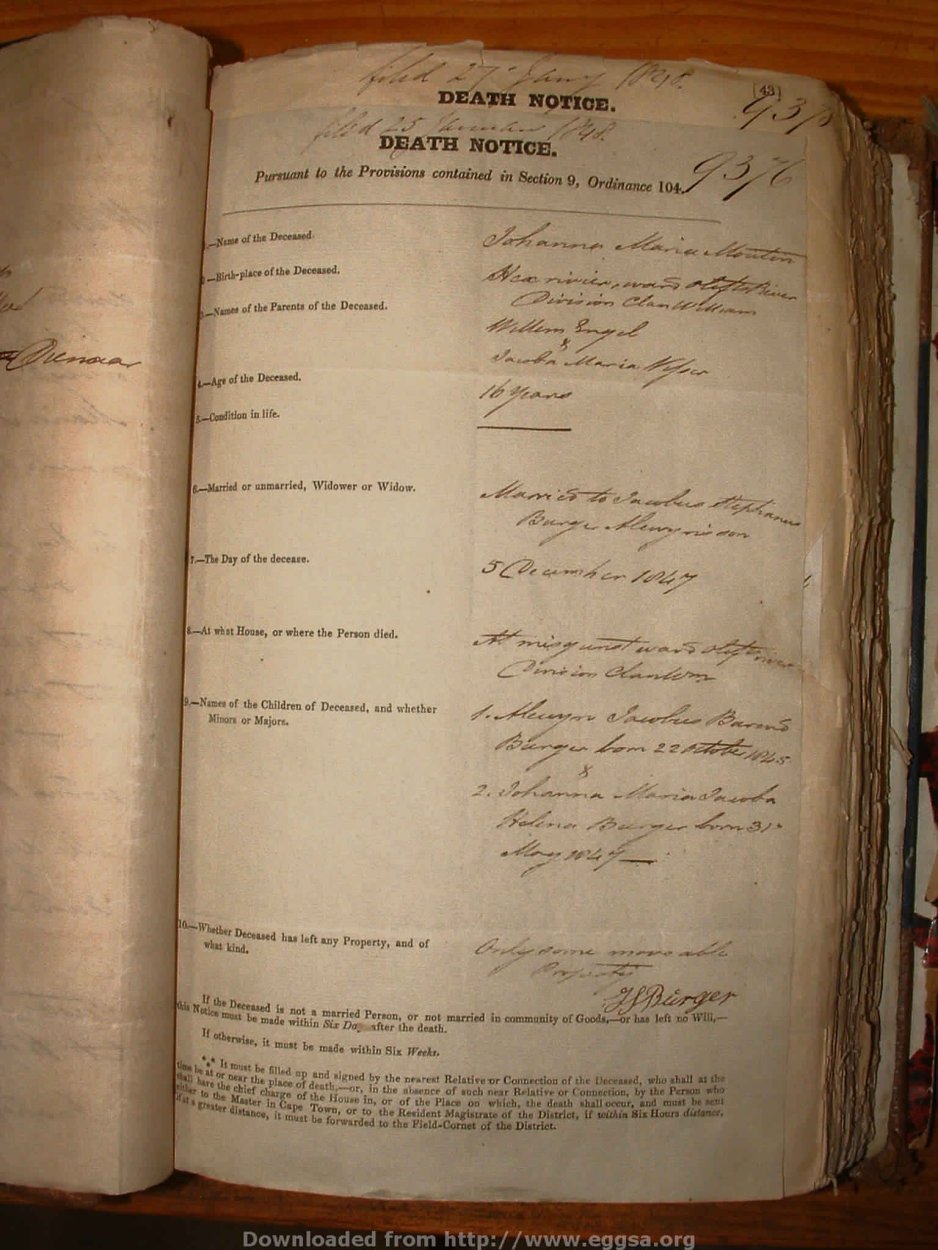 filed 27 1848.
DEATH NOTICE.
[43]
937
filed 25 1848.
DEATH NOTICE.
9376
Pursuant to the Provisions contained in Section 9, Ordinance 104.
1.—Name of the Deceased.
Johanna Maria Mouton
2.—Birth-place of the Deceased.
Hexrivier, ward Olifts River
Division ClanWilliam
3.—Names of the Parents of the Deceased.
Willem Engel
&
Jacoba Maria
4.—Age of the Deceased.
16 Years
5.—Condition in life.
6.—Married or unmarried, Widower or Widow.
Married to Jacobus Stephanus
Burger Alewynsson
7.—The Day of the decease.
5 December 1847
8.—At what House, or where the Person died.
At misgunst ward
Division ClanWm
9.—Names of the Children of Deceased, and whether
Minors or Majors.
1. Alewyn Jacobus Barend
Burger born 22 October 1845
&
2. Johanna Maria Jacoba
Helena Burger born 31
May 1847
10.—Whether Deceased has left any Property, and of
what kind.
Only some moveable
Property
JSBurger
If the Deceased is not a married Person, or not married in community of Goods,—or has left no Will,—
this Notice must be made within Six Da after the death.
If otherwise, it must be made within Six Weeks.
*** It must be filled up and signed by the nearest Relative or Connection of the Deceased, who shall at the
time be at or near the place of death,—or, in the absence of such near Relative or Connection, by the Person who
shall have the chief charge of the House in, or of the Place on which, the death shall occur, and must be sent
either to the Master in Cape Town, or to the Resident Magistrate of the District, if within Six Hours distance,
if at a greater distance, it must be forwarded to the Field-Cornet of the District.
Downloaded from http://www.eggsa.org